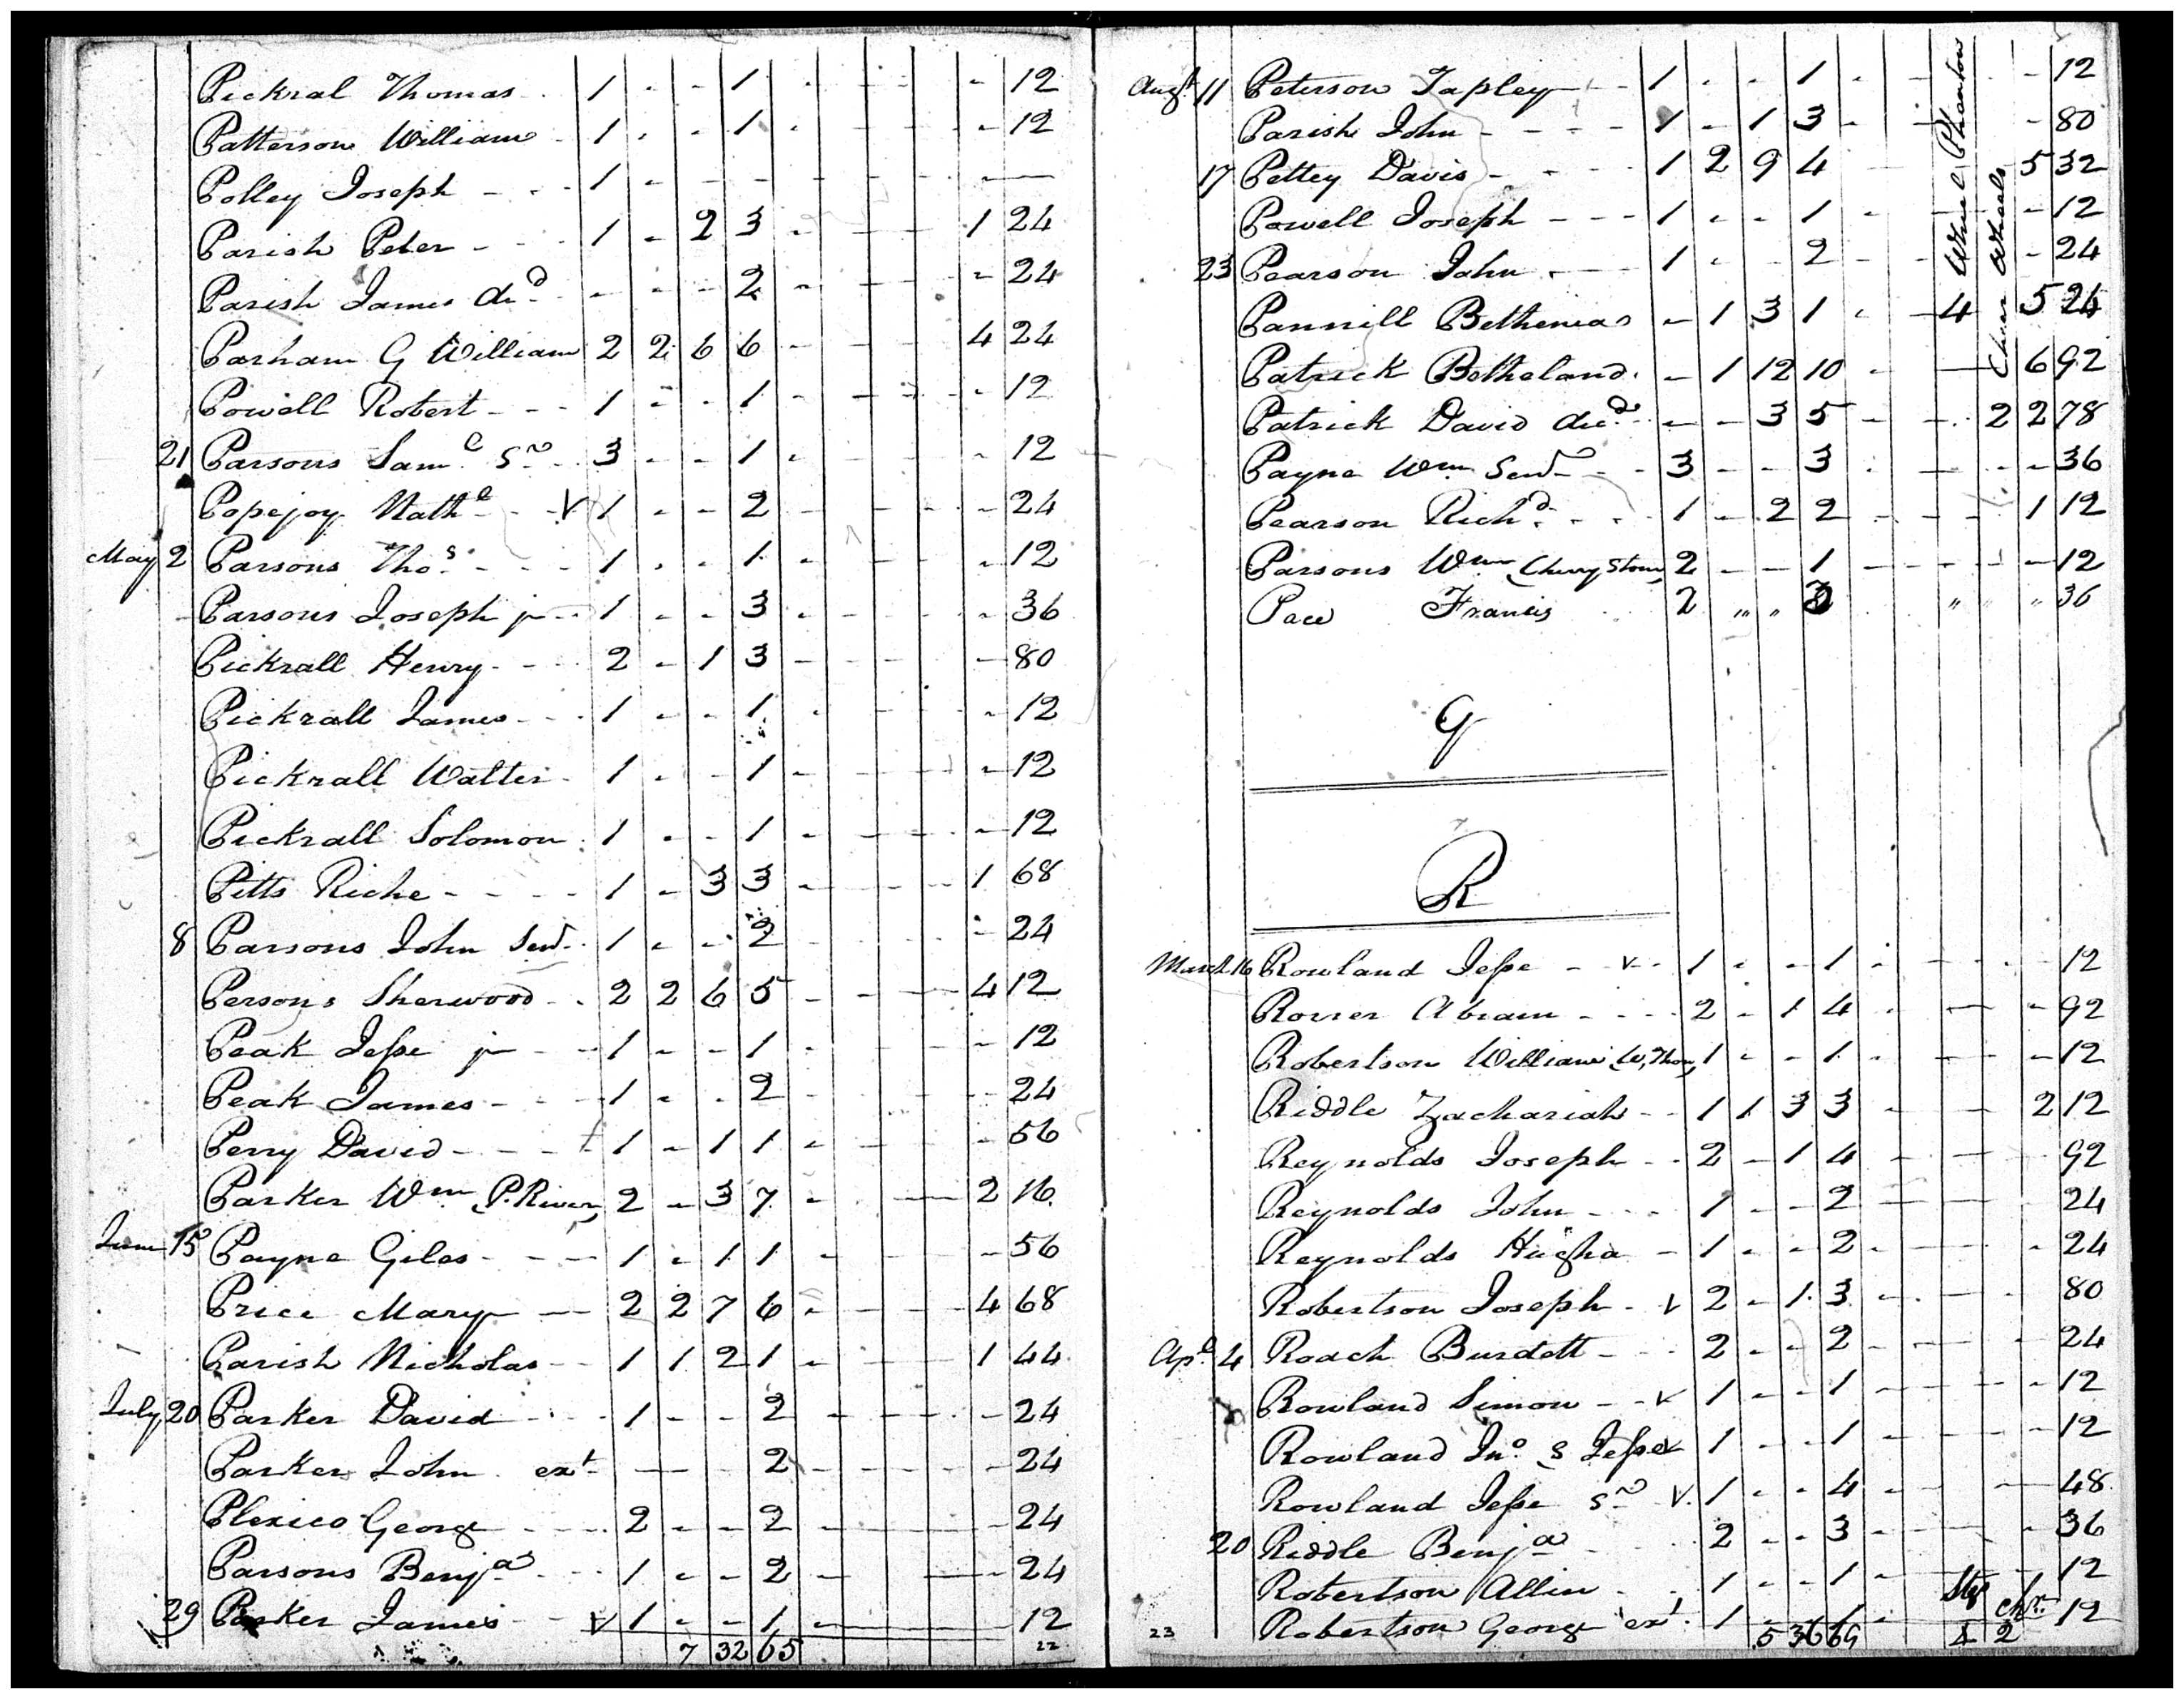 Pickral Thomas 1 - - 1 - - - - - 12
Patterson William 1 - - 1 - - - - - 12
Polley Joseph 1 - - - - - - - - —
Parish Peter 1 - 2 3 - - - - 1 24
Parish James decd - - - 2 - - - - - 24
Parham G William 2 2 6 6 - - - - 4 24
Powell Robert 1 - - 1 - - - - - 12
21 Parsons Saml Sr 3 - - 1 - - - - - 12
Popejoy Nathl V 1 - - 2 - - - - - 24
May 2 Parsons Thos 1 - - 1 - - - - - 12
Parsons Joseph jr 1 - - 3 - - - - - 36
Pickrall Henry 2 - 1 3 - - - - - 80
Pickrall James 1 - - 1 - - - - - 12
Pickrall Walter 1 - - 1 - - - - - 12
Pickrall Solomon 1 - - 1 - - - - - 12
Pitts Riche 1 - 3 3 - - - - 1 68
8 Parsons John Senr 1 - - 2 - - - - - 24
Persons Sherwood 2 2 6 5 - - - - 4 12
Peak Jesse jr 1 - - 1 - - - - - 12
Peak James 1 - - 2 - - - - - 24
Perry David 1 - 1 1 - - - - - 56
Parker Wm (P. River) 2 - 3 7 - - - - 2 16
June 15 Payne Giles 1 - 1 1 - - - - - 56
Price Mary 2 2 7 6 - - - - 4 68
Parish Nicholas 1 1 2 1 - - - - 1 44
July 20 Parker David 1 - - 2 - - - - - 24
Parker John ext - - - 2 - - - - - 24
Plexico George 2 - - 2 - - - - - 24
Parsons Benja 1 - - 2 - - - - - 24
29 Parker James V 1 - - 1 - - - - - 12
7 32 65 22
Augt 11 Peterson Tapley 1 - - 1 - - - - 12
Parish John 1 - 1 3 - - - - 80
17 Pettey Davis 1 2 9 4 - - - 5 32
Powell Joseph 1 - - 1 - - - - 12
23 Pearson John 1 - - 2 - - - - 24
Pannill Bethenia - 1 3 1 - 4 5 24
Patrick Betheland - 1 12 10 - - 6 92
Patrick David decd - - 3 5 - - 2 2 78
Payne Wm Senr 3 - - 3 - - - - 36
Pearson Richd 1 - 2 2 - - - 1 12
Parsons Wm (Cherry Stone) 2 - - 1 - - - - 12
Pace Francis 2 " " 3 " " 36
4 Wheel Phaeton
Chair Wheels
Q
R
March 16 Rowland Jesse v 1 - - 1 - - - - 12
Rorrer Abram 2 - 1 4 - - - 92
Robertson William (W, Thon) 1 - - 1 - - - 12
Riddle Zachariah 1 1 3 3 - - 2 12
Reynolds Joseph 2 - 1 4 - - - 92
Reynolds John 1 - - 2 - - - 24
Reynolds Hugh 1 - - 2 - - - 24
Robertson Joseph V 2 - 1 3 - - - 80
Apl 4 Roach Burdett 2 - - 2 - - - 24
Rowland Simon v 1 - - 1 - - - 12
Rowland Jno S Jesse v 1 - - 1 - - - 12
Rowland Jesse Sr V 1 - - 4 - - - 48
20 Riddle Benja 2 - - 3 - - - 36
Robertson Allin 1 - - 1 - - - 12
Robertson George ext 1 - - 1 - 12
23 5 36 69 4 2